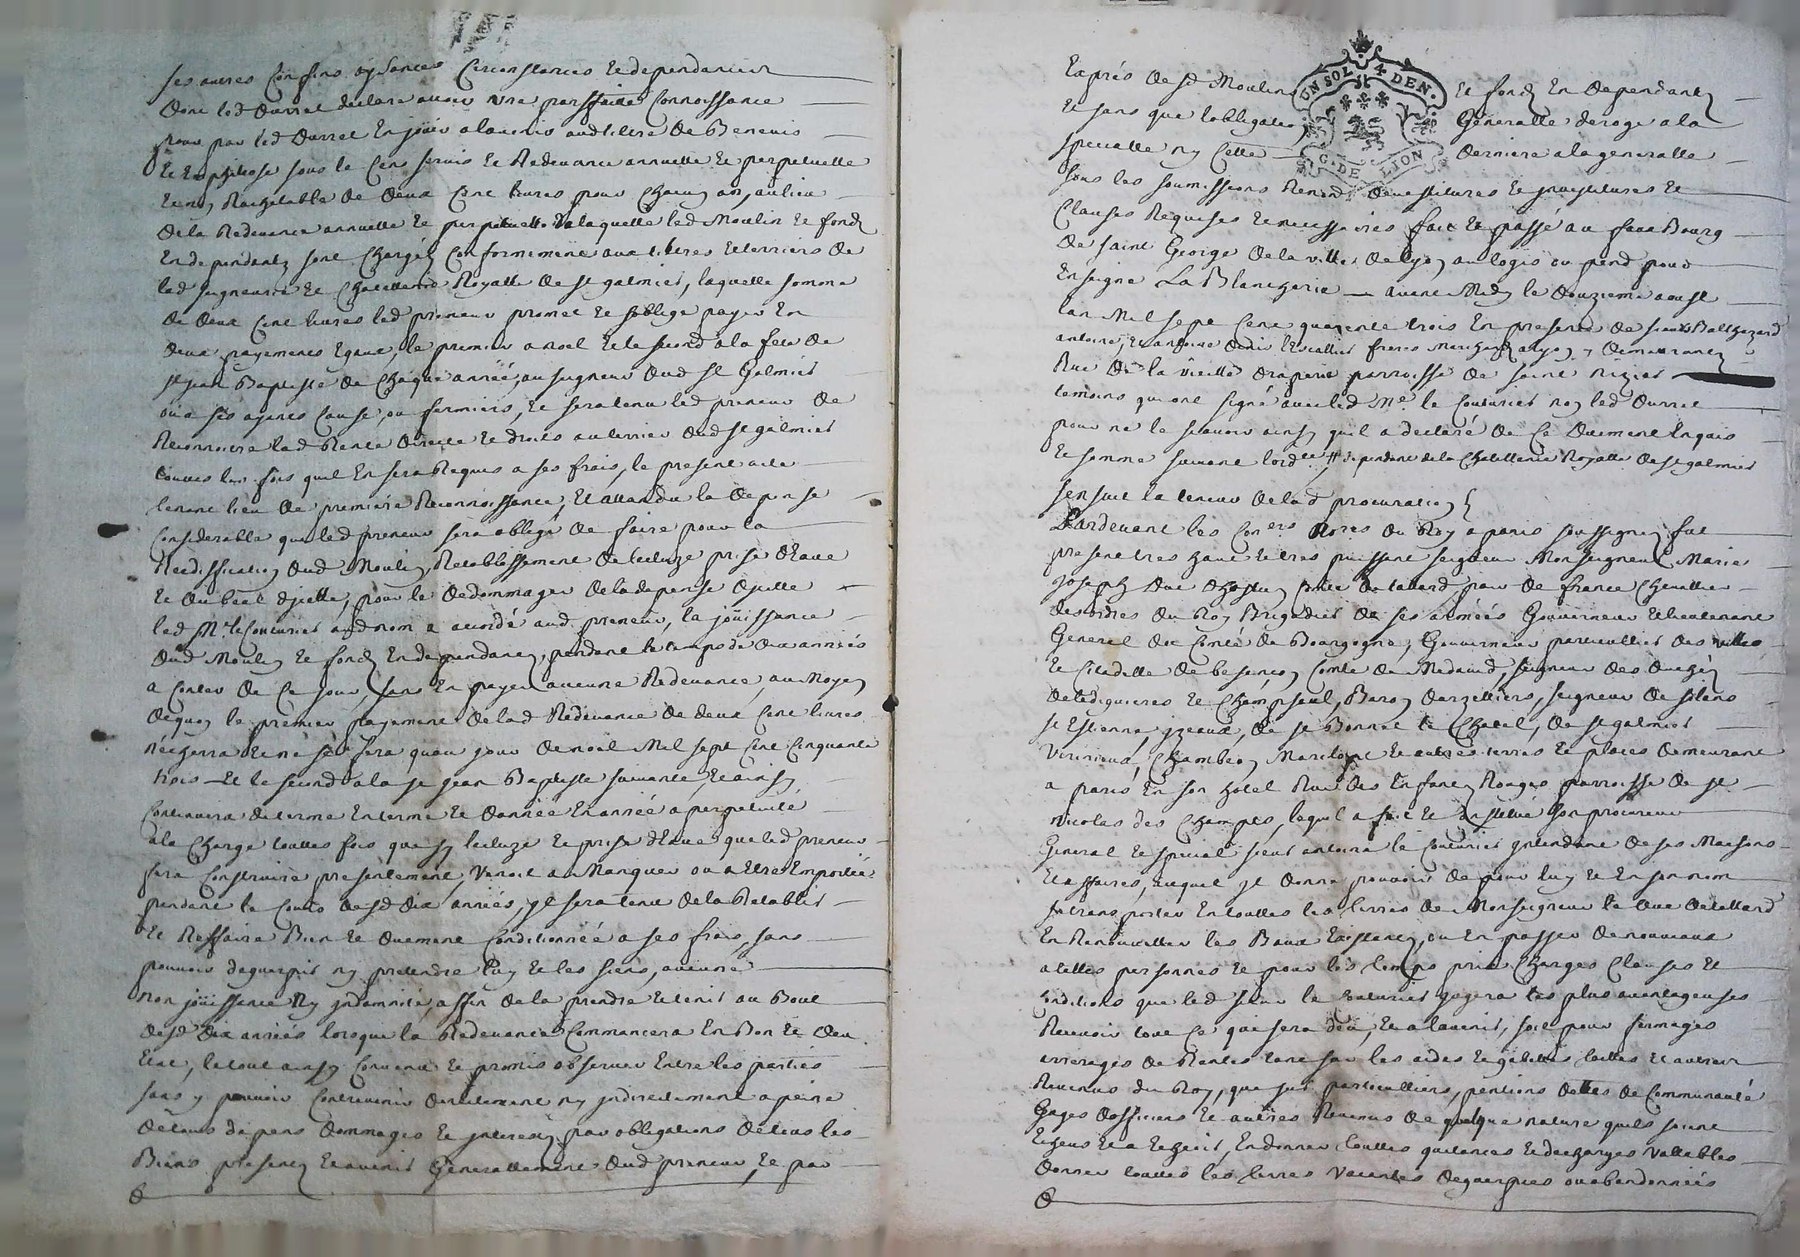 ses autres Confins aysances Circonstances et dependances
dont led Durret declare avoir une parffaite Connoissance
pour par led Durret En jouir a lavenir aud tiltre de Benevis
Et Emphiteose sous le Cens servis et Redevance annuelle et perpetuelle
Et non Rachetable de deux Cent livres pour Chacun an, au lieu
de la Redevance annuelle et perpetuelle de laquelle led Moulin et fond
En dependants sont Chargés Conformement aux tiltres et terriers de
lad seigneurie et Chatellenie Royalle de st galmier, laquelle somme
de deux Cent livres led preneur promet et soblige payer En
deux payements Egaux, le premier a noel et le second a la fete de
st jean Baptiste de Chaque année, au seigneur dud st Galmier
ou a ses ayants Cause, ou fermiers, et sera tenu led preneur de
Reconnoitre lad Rente directe et droits au terrier dud st galmier
touttes les fois quil En sera Requis a ses frais, le present acte
tenant lieu de premiere Reconnoissance, Et attendu la depense
Considerable que led preneur sera obligé de faire pour la
Reedification dud Moulin, Retablissement de lecluze prise dEaue
et du béal dicelle, pour le dedommager de la depense dicelle
led Mr. le Couturier aud nom a accordé aud preneur, la joüissance
dud Moulin et fonds En dependants, pendant le temps de dix années
a Conter de Ce jour, sans En payer aucune Redevance, au Moyen
dequoy le premier payement de lad Redevance de deux Cent livres
nécherra et ne se fera quau jour de noel Mil sept Cent Cinquante
trois – Et le second a la st jean Baptiste suivante, et ainsy
Continuera de terme En terme et dannée En année a perpetuité
a la Charge touttes fois que sy lecluze et prise dEaue que led preneur
fera Construire presentement, Venoit a Manquer ou a Etre Emportée
pendant le Cours desd dix années, yl sera tenu de la Retablir
Et Reffaire Bien et duement Conditionnée a ses frais, sans
pouvoir deguerpir ny pretendre luy et les siens, aucune
non joüissance ny jndamnité, affin de la prendre et tenir au Bout
desd dix années lorsque la Redevance Commancera En Bon et deu
Etat, le tout ainsy Convenu et promis observer Entre les parties
sans y pouvoir Contrevenir directement ny jndirectement a peine
de tous depens dommages et jnterests, par obligations de tous les
Biens presents et avenir Generallement dud preneur, et par
Exprés desd Moulins et fonds En dependants
UN SOL. 4 DEN.
G. DE LION
Et sans que lobligation Generalle deroge a la
specialle ny Cette derniere a la generalle
sous les soumissions Renon devestitures et jnvestitures et
Clauses Requises et necessaires fait et passé au faux Bourg
de saint George de la ville de Lyon au logis ou pend pour
Enseigne La Blancherie — avant Midy le douzieme aoust
lan Mil sept Cent quarente trois En presence de sieurs Balthazard
antoine, Et antoine denis lescallier freres Marchands a lyon y demeurants
Rue de la vieille draperie parroisse de saint nizier
temoins qui ont signé avec led Mr. le Couturier non led Durret
pour ne le scavoir ainsy quil a declaré de Ce duement Enquis
Et sommé suivant lord ce dependant de la Chatellenie Royalle de st galmier
sensuit la teneur de lad procuration
Pardevant les Coners Nores du Roy a paris soussignez fut
present tres haut et tres puissant seigneur Monseigneur Marie
joseph duc dhostun Comte de tallard pair de france Chevallier
des ordres du Roy Brigadier de ses armées Gouverneur et lieutenant
General du Comté de Bourgogne, Gouverneur particullier des villes
Et Citadelle de besancon, Comte de seigneur des duchés
de lediguieres et Champseul, Baron darzelliers, seigneur de
st Estienne, yzeaux, de st Bonnet le Chatel, de st galmier
Virieux, Chambeon, Marclopt et autres terres et places demeurant
a paris En son hotel Rue des Enfants Rouges parroisse de st
nicolas des Champs, lequel a fait et Constitué son procureur
General et special sieur antoine le Couturier jntendant de ses Maisons
Et affaires, auquel jl donne pouvoir de pour luy et En son nom
se transporter En touttes les terres de Monseigneur le duc de tallard
En Renouveller les Baux Existants, ou En passer de nouveaux
a telles personnes et pour les temps prix Charges Clauses et
Conditions que led sieur le Couturier jugera les plus avantageuses
Recevoir tout Ce qui sera deu, Et a lavenir, soit pour fermages
arrerages de Rentes tant sur les aides et gabelles tailles et autres
Revenus du Roy, que sur particulliers, pentions dettes de Communauté
Gages dofficiers et autres Revenus de quelque nature quils soient
Echeus et a Echeoir, En donner touttes quitances et decharges Vallables
donner touttes les terres vacantes deguerpies ou abandonnées